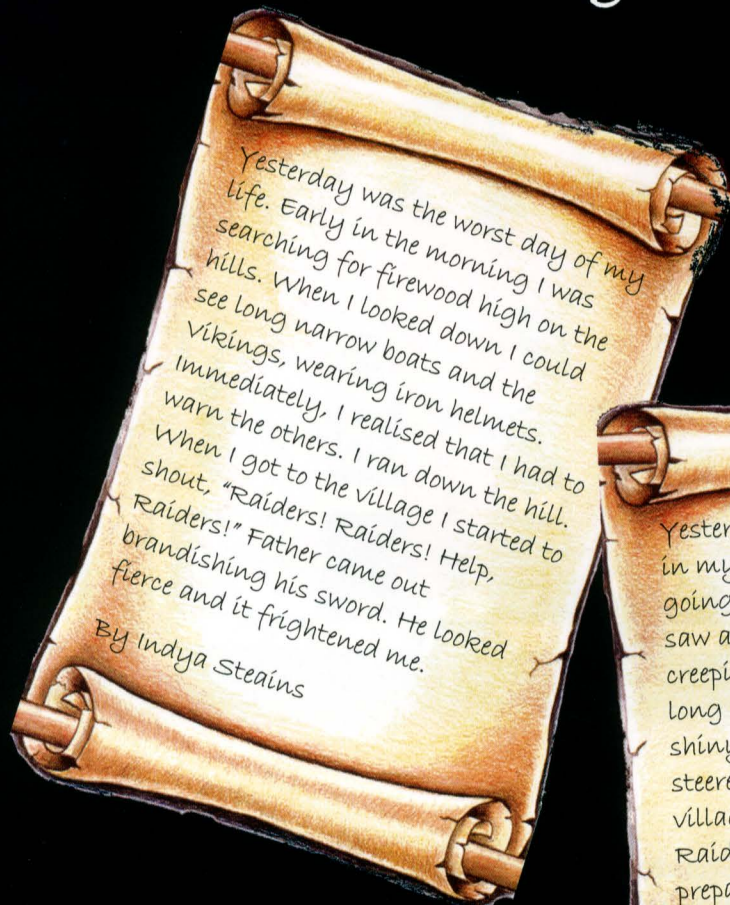 Yesterday was the worst day of my
life. Early in the morning I was
searching for firewood high on the
hills. When I looked down I could
see long narrow boats and the
Vikings, wearing iron helmets.
Immediately, I realised that I had to
warn the others. I ran down the hill.
When I got to the village I started to
shout, “Raiders! Raiders! Help,
Raiders!” Father came out
brandishing his sword. He looked
fierce and it frightened me.
By Indya Steains
in my
going
saw a
long
shiny